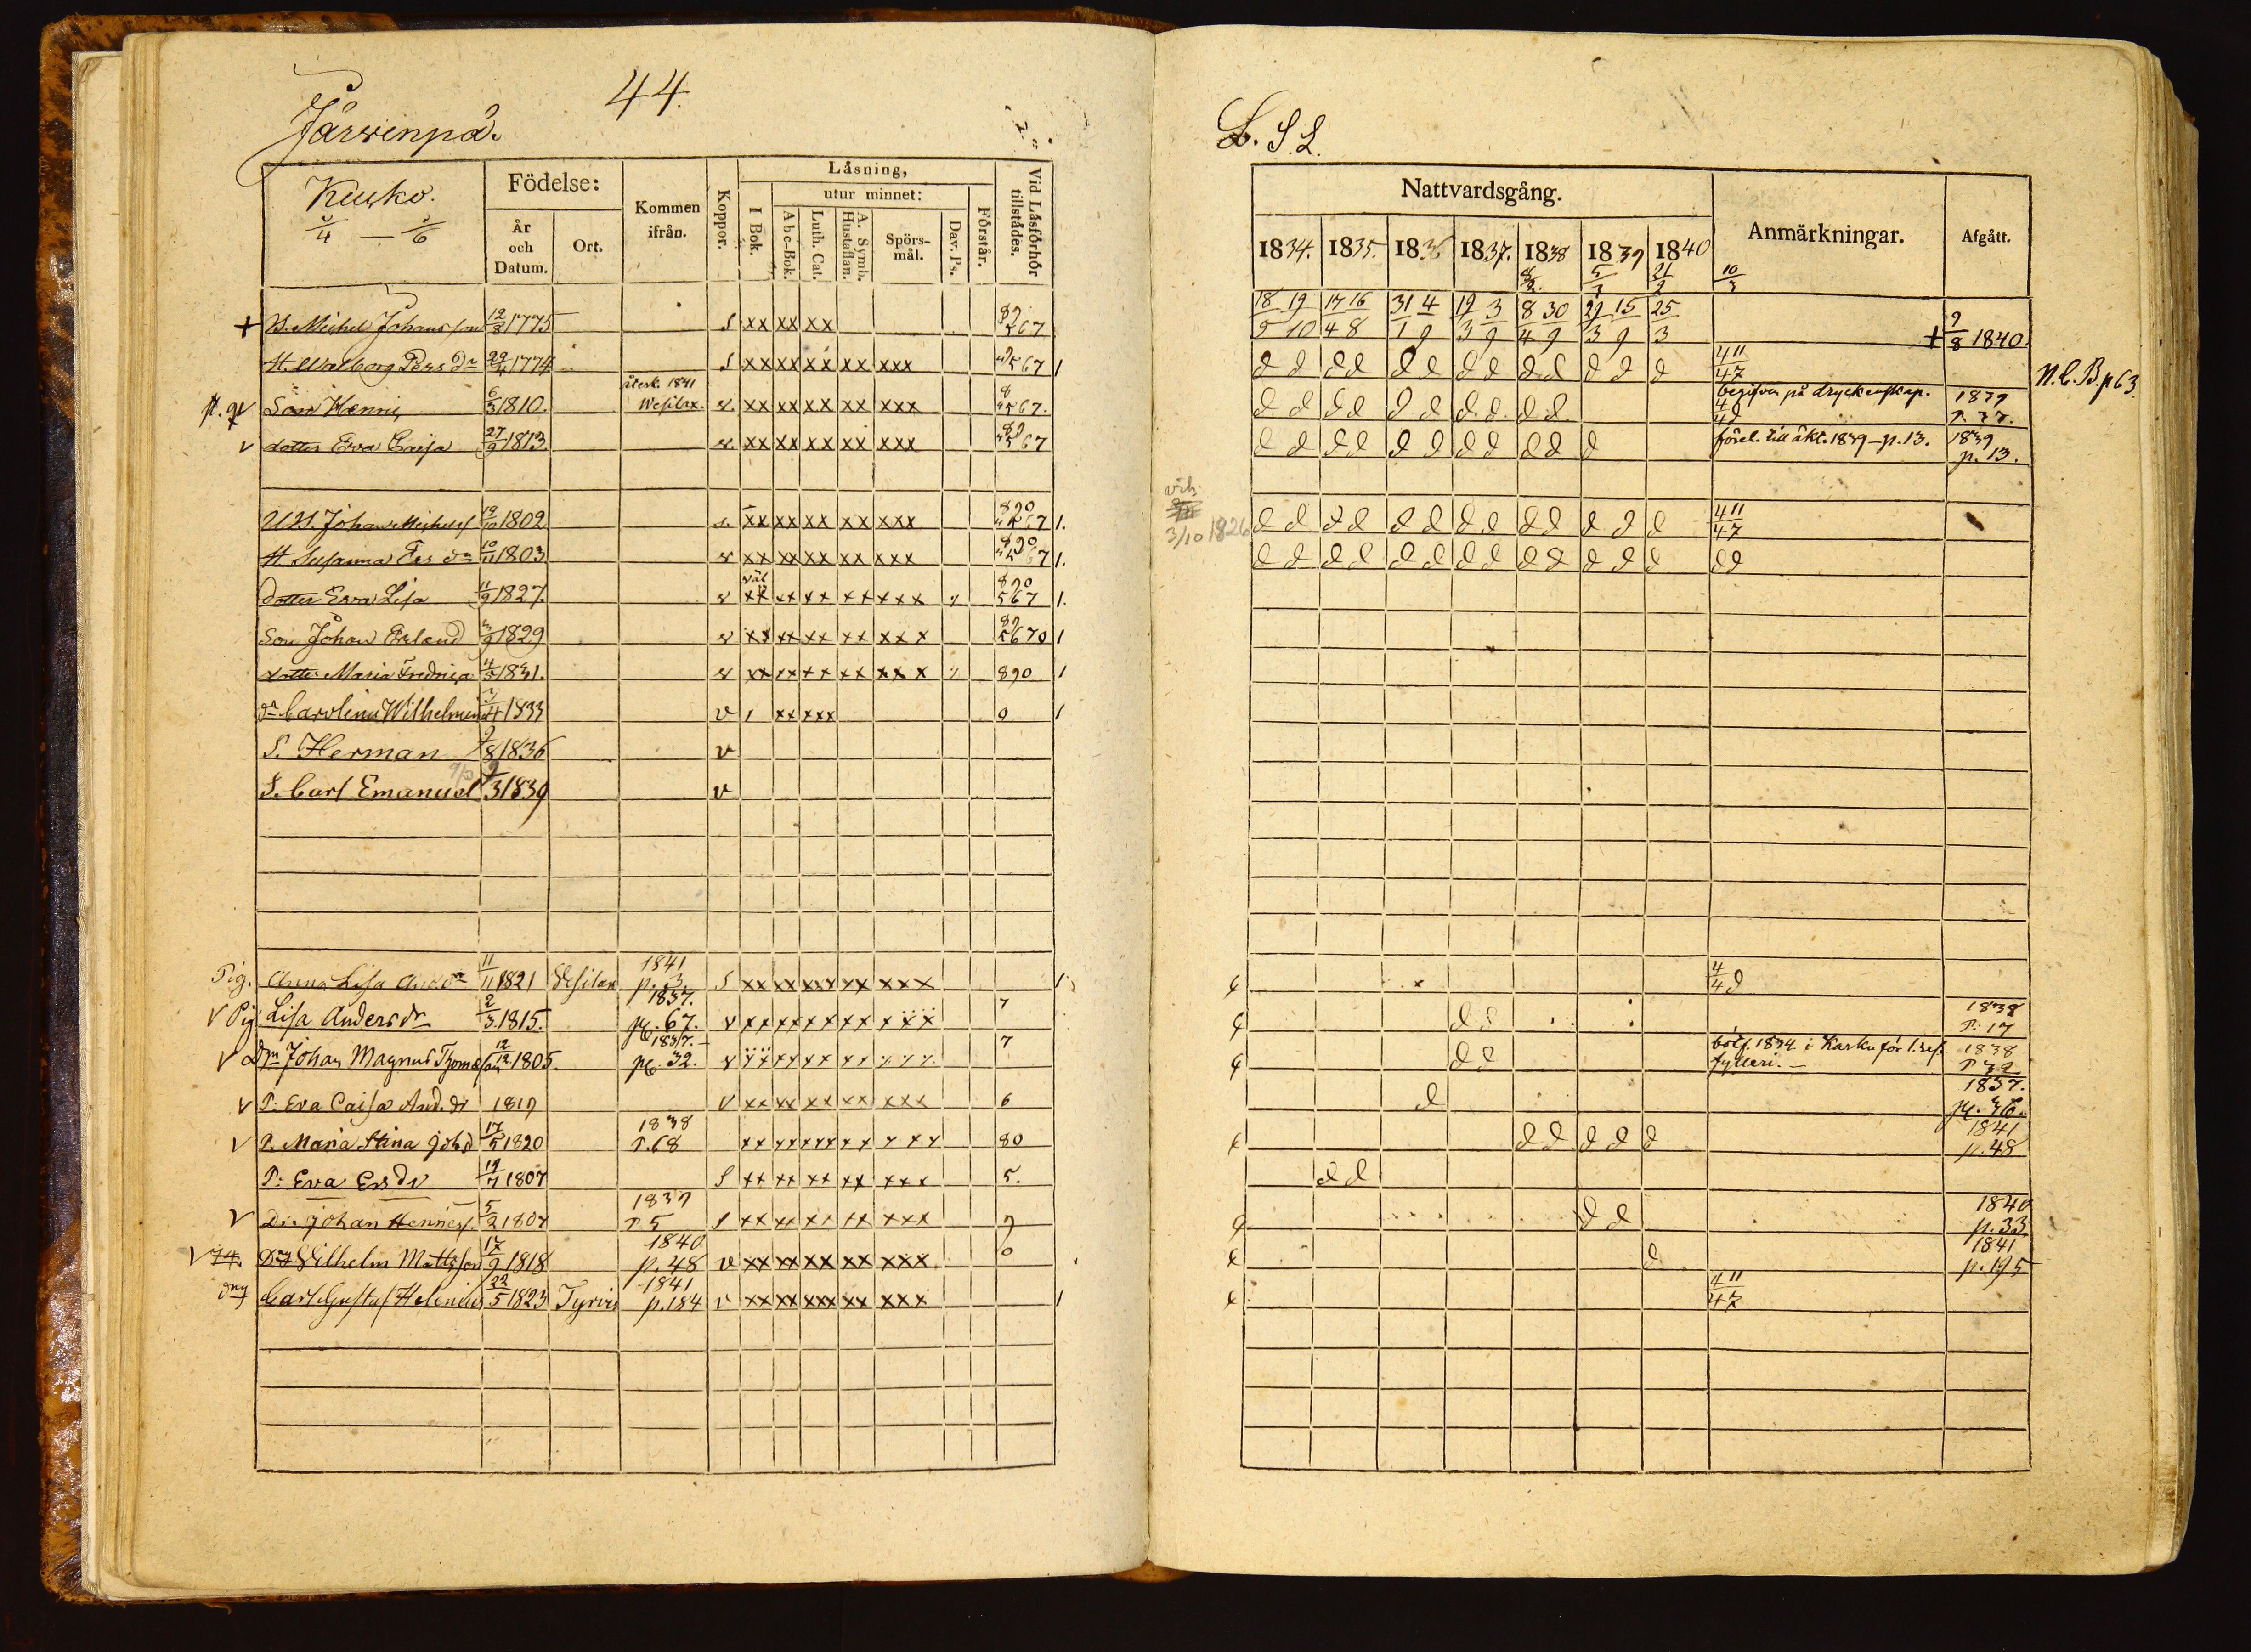 44.
Järvenpä.
Kuuko.
Födelse:
År och Datum.
Ort.
Kommen ifrån.
Koppor.
Låsning,
I Bok.
utur minnet:
Abc-Bok.
Luth. Cat.
A. Symb. Hustaflan.
Spörs-mål.
Dav. Ps.
Förstår.
Vid Låsförhör tillstädes.
+ B. Michel Johansson 12/8 1775 S xx xx xx
H. Walborg Pers dr 22/4 1774 S xx xx xx xx xxx 1
Son Henric 6/3 1810. återk. 1841 Wesilax. v. xx xx xx xx xxx 567.
v dotter Eva Caisa 27/9 1813. v. xx xx xx xx xxx 567
Johan Michelss 19/10 1802 xx xx xx xx xxx 1.
H Susanna Ers dr 10/11 1803 v xx xx xx xx xxx 1.
dotter Eva Lisa 11/9 1827. v väl xx xx xx xx xxx 890 567 1.
Son Johan Erland 1829 v xx xx xx xx xxx 5670 1
dotter Maria Fredrica 4/5 1831. v xx xx xx xx xxx 890 1
dr Carolina Wilhelmina 1833 v 1 xx xxx 0 1
S. Herman 9/8 1836 v
S. Carl Emanuel 9/3 1839 v
Pig. Anna Lisa And.dr 11/11 1821 Vesilax 1841 p. 3. S xx xx xxx xx xxx 1
V Pig Lisa Anders dr 2/3 1815. 1837. p. 67. v xx xx xx xx xxx 7
V Johan Magnus Thomasson 12/12 1805. 1837. p. 32. v xx xx xx xx 7
V P. Eva Caisa And. dr 1817 v xx xx xx xx xxx 6
V P. Maria Stina Johs d 17/5 1820 1838 P. 68 xx xx xxx xx xxx 80
P: Eva Ers dr 19/7 1807 S xx xx xx xx xxx 5.
V Dr. Johan Henricss. 5/2 1807 1839 P 5 S xx xx xx xx xxx 9
V Wilhelm Mattsson 17/9 1818 1840 p. 48 v xx xx xx xx xxx 0
dng Carl Gustaf Helenius 22/5 1823 Tyrvis 1841 p. 184 v xx xx xxx xx xxx 1
L. S. L.
Nattvardsgång.
Anmärkningar.
Afgått.
1834. 1835. 1836 1837. 1838 1839 1840
8/2. 5/3 21/2 10/3
18/5 19/10 17/4 16/8 31/1 4/9 19/3 3/9 8/4 30/9 29/3 15/9 25/3
+ 9/8 1840.
d d d d d d d d d d d d d 4/4 11/7
N. C. B. p 63.
d d d d d d d d d d begifven på dryckenskap. 4/4 d 1839 P. 37.
d d d d d d d d d d d förel. till äkt. 1839 - p. 13. 1839 p. 13.
vih.
3/10 1826
d d d d d d d d d d d d d 4/4 11/7
d d d d d d d d d d d d d d d
4/4 d
d d 1838 P. 17
d d böt. 1834 i Karku för 1. res. fylleri. 1838 P 32
d 1837. p. 36.
d d d d d 1841 p. 48
d d
d d 1840 p. 33
d 1841 p. 195
4/4 11/7